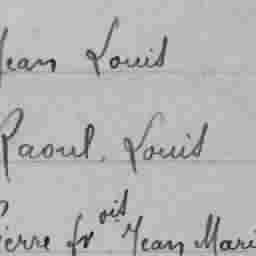 Jean Louis
Raoul, Louis
Pierre fr ois Jean Mari